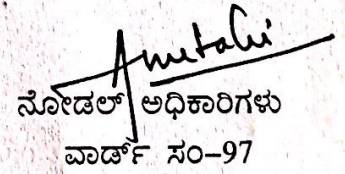 ನೋಡಲ್ ಅಧಿಕಾರಿಗಳು
ವಾರ್ಡ್ ಸಂ-97